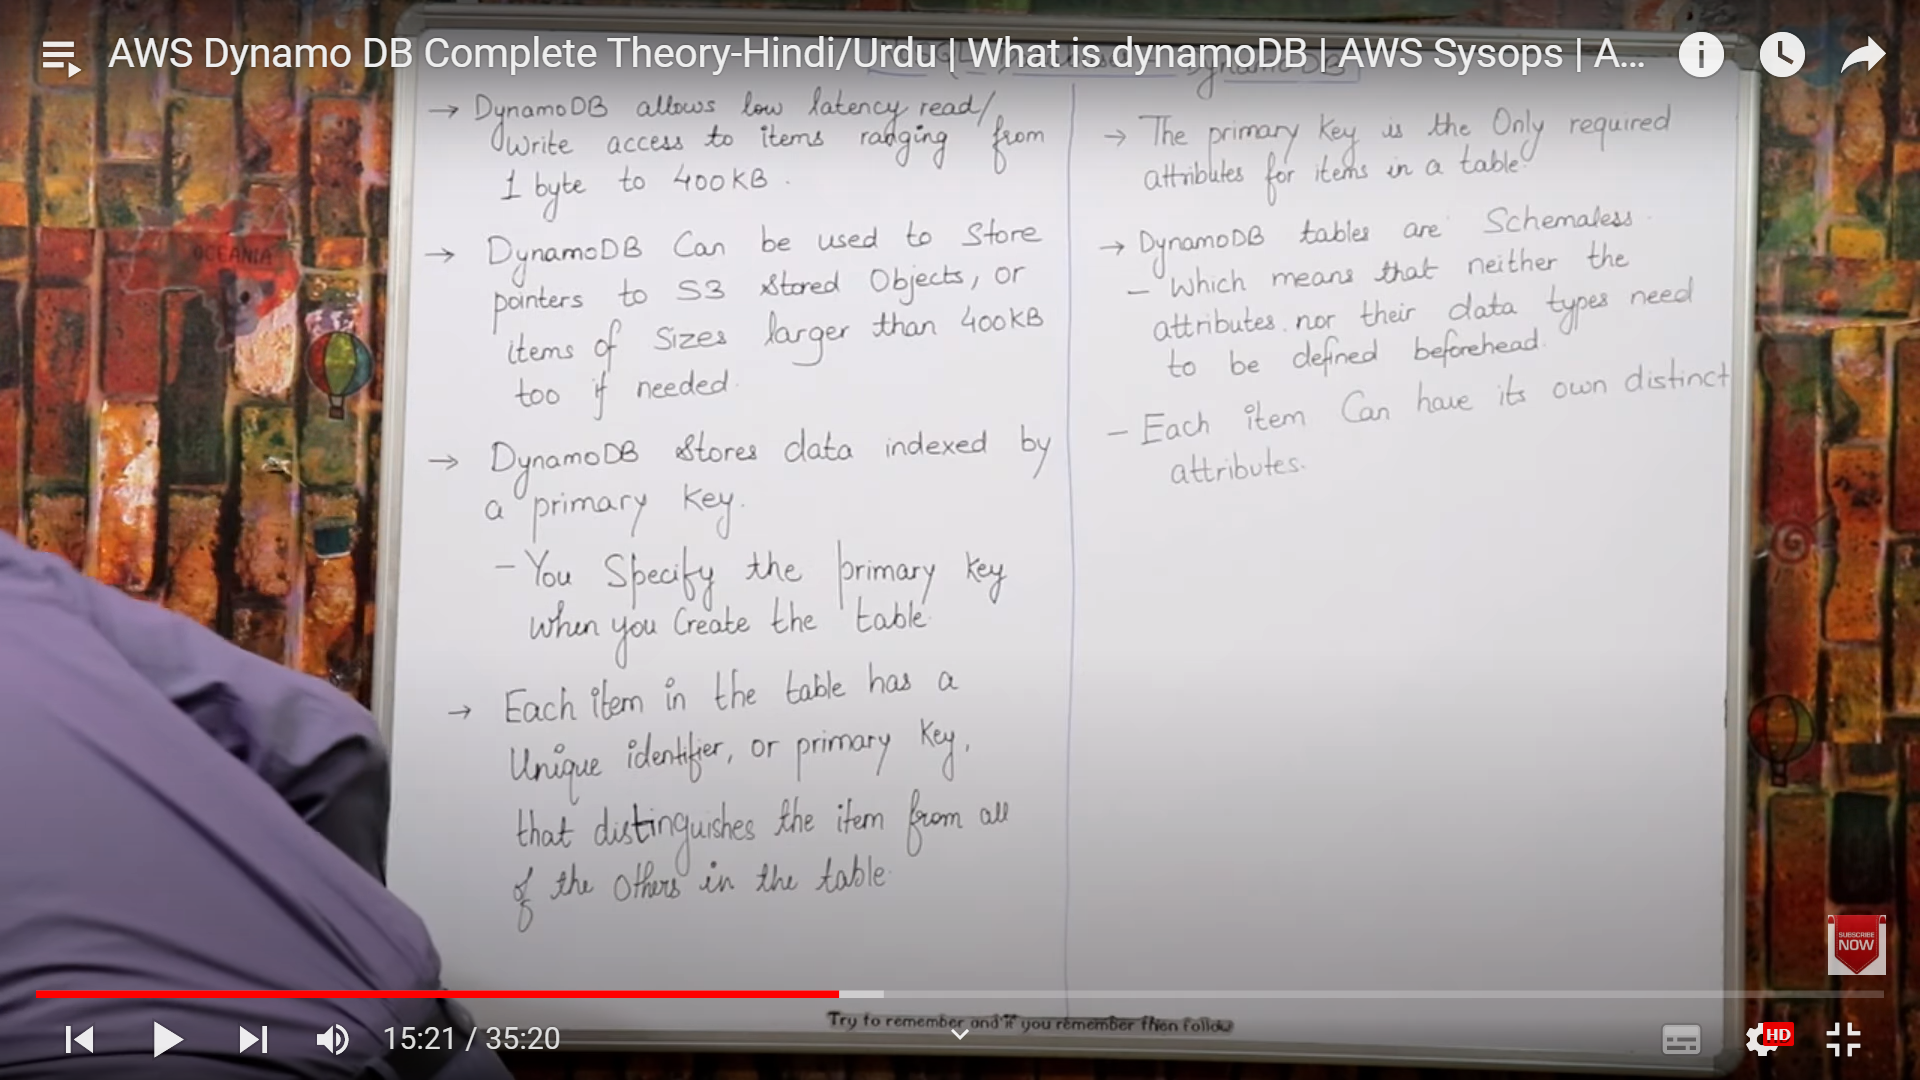 AWS Dynamo DB Complete Theory-Hindi/Urdu | What is dynamoDB | AWS Sysops | A...
DynamoDB
→ DynamoDB allows low latency read/
write access to items ranging from
1 byte to 400KB.
→ DynamoDB Can be used to Store
pointers to S3 Stored Objects, or
items of Sizes larger than 400KB
too if needed.
→ DynamoDB Stores data indexed by
a primary key.
– You Specify the primary key
when you Create the table.
→ Each item in the table has a
Unique identifier, or primary key,
that distinguishes the item from all
of the Others in the table.
→ The primary key is the Only required
attributes for items in a table.
→ DynamoDB tables are Schemaless.
– Which means that neither the
attributes nor their data types need
to be defined beforehead.
– Each item Can have its own distinct
attributes.
OCEANIA
SUBSCRIBE
NOW
Try to remember and if you remember then follow
15:21 / 35:20
HD